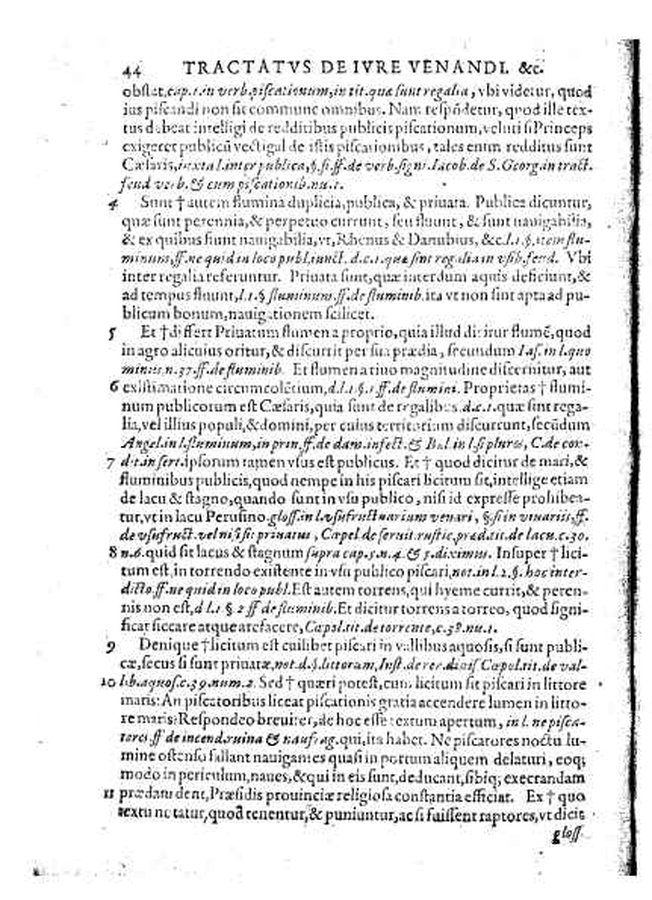 44 TRACTATVS DE IVRE VENANDI. &c.
obstat, cap. 1. in verb. piscationum, in tit. quæ sunt regalia, vbi videtur, quod
ius piscandi non sit commune omnibus. Nam respōdetur, quod ille tex-
tus debeat intelligi de redditibus publicis piscationum, veluti si Princeps
exigeret publicū vectigal de istis piscationibus, tales enim redditus sunt
Cæsaris, iuxta l. inter publica, §. si. ff. de verb. signi. Iacob. de S. Georg. in tract.
feud verb. & cum piscationib. nu. 1.
4 Sunt † autem flumina duplicia, publica, & priuata. Publica dicuntur,
quæ sunt perennia, & perpetuo currunt, seu fluunt, & sunt nauigabilia,
& ex quibus fiunt nauigabilia, vt, Rhenus & Danubius, &c. l. 1. §. item flu-
minum, ff. ne quid in loco publ. iunct. d. c. 1. quæ sint regalia in vsib. feud. Vbi
inter regalia referuntur. Priuata sunt, quæ interdum aquis deficiunt, &
ad tempus fluunt, l. 1. § fluminum. ff. de fluminib. ita vt non sint apta ad pu-
blicum bonum, nauigationem scilicet.
5 Et † differt Priuatum flumen a proprio, quia illud dicitur flumē, quod
in agro alicuius oritur, & discurrit per sua prædia, secundum Ias. in l. quo
minus, n. 37. ff. de fluminib. Et flumen a riuo magnitudine discernitur, aut
6 existimatione circumcolētium, d. l. 1. §. 1. ff. de flumini. Proprietas † flumi-
num publicorum est Cæsaris, quia sunt de regalibus d. c. 1. quæ sint rega-
lia, vel illius populi, & domini, per cuius territorium discurrunt, secūdum
Angel. in l. fluminum, in prin. ff. de dam. infect. & Bal. in l. si plures, C. de con-
7 dit. insert. Ipsorum tamen vsus est publicus. Et † quod dicitur de mari, &
fluminibus publicis, quod nempe in his piscari licitum sit, intellige etiam
de lacu & stagno, quando sunt in vsu publico, nisi id expresse prohibea-
tur, vt in lacu Perusino. gloss. in l. vsufructuarium venari, §. si in viuariis, ff.
de vsufruct. vel nisi si: priuatus, Cæpol. de seruit. rustic. præd. tit. de lacu. c. 30.
8 n. 6. quid sit lacus & stagnum supra cap. 5. n. 4. & 5. diximus. Insuper † lici-
tum est, in torrendo existente in vsu publico piscari, not. in l. 2. §. hoc inter-
dicto. ff. ne quid in loco publ. Est autem torrens, qui hyeme currit, & peren-
nis non est, d l. 1. §. 2. ff de fluminib. Et dicitur torrens a torreo, quod signi-
ficat siccare atque arefacere, Cæpol. tit. de torrente, c. 38. nu. 1.
9 Denique † licitum est cuilibet piscari in vallibus aquosis, si sunt publi-
cæ, secus si sunt priuatæ, not. d. §. littorum, Inst. de rer. diuis Cæpol. tit. de val-
10 lib. aquos. c. 39. num. 2. Sed † quæri potest, cum licitum sit piscari in littore
maris: An piscatoribus liceat piscationis gratia accendere lumen in litto-
re maris? Respondeo breuiter, de hoc esse textum apertum, in l. ne pisca-
tores. ff de incend. ruina & naufrag. qui, ita habet. Ne piscatores noctu lu-
mine ostenso fallant nauigantes quasi in portum aliquem delaturi, eoq;
modo in periculum, naues, & qui in eis sunt, deducant, sibiq; execrandam
11 prædam dent, Præsidis prouinciæ religiosa constantia efficiat. Ex † quo
textu notatur, quod tenentur, & puniuntur, ac si fuissent raptores, vt dicit
gloss